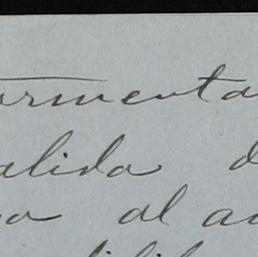 ormenta
alida d
o al a